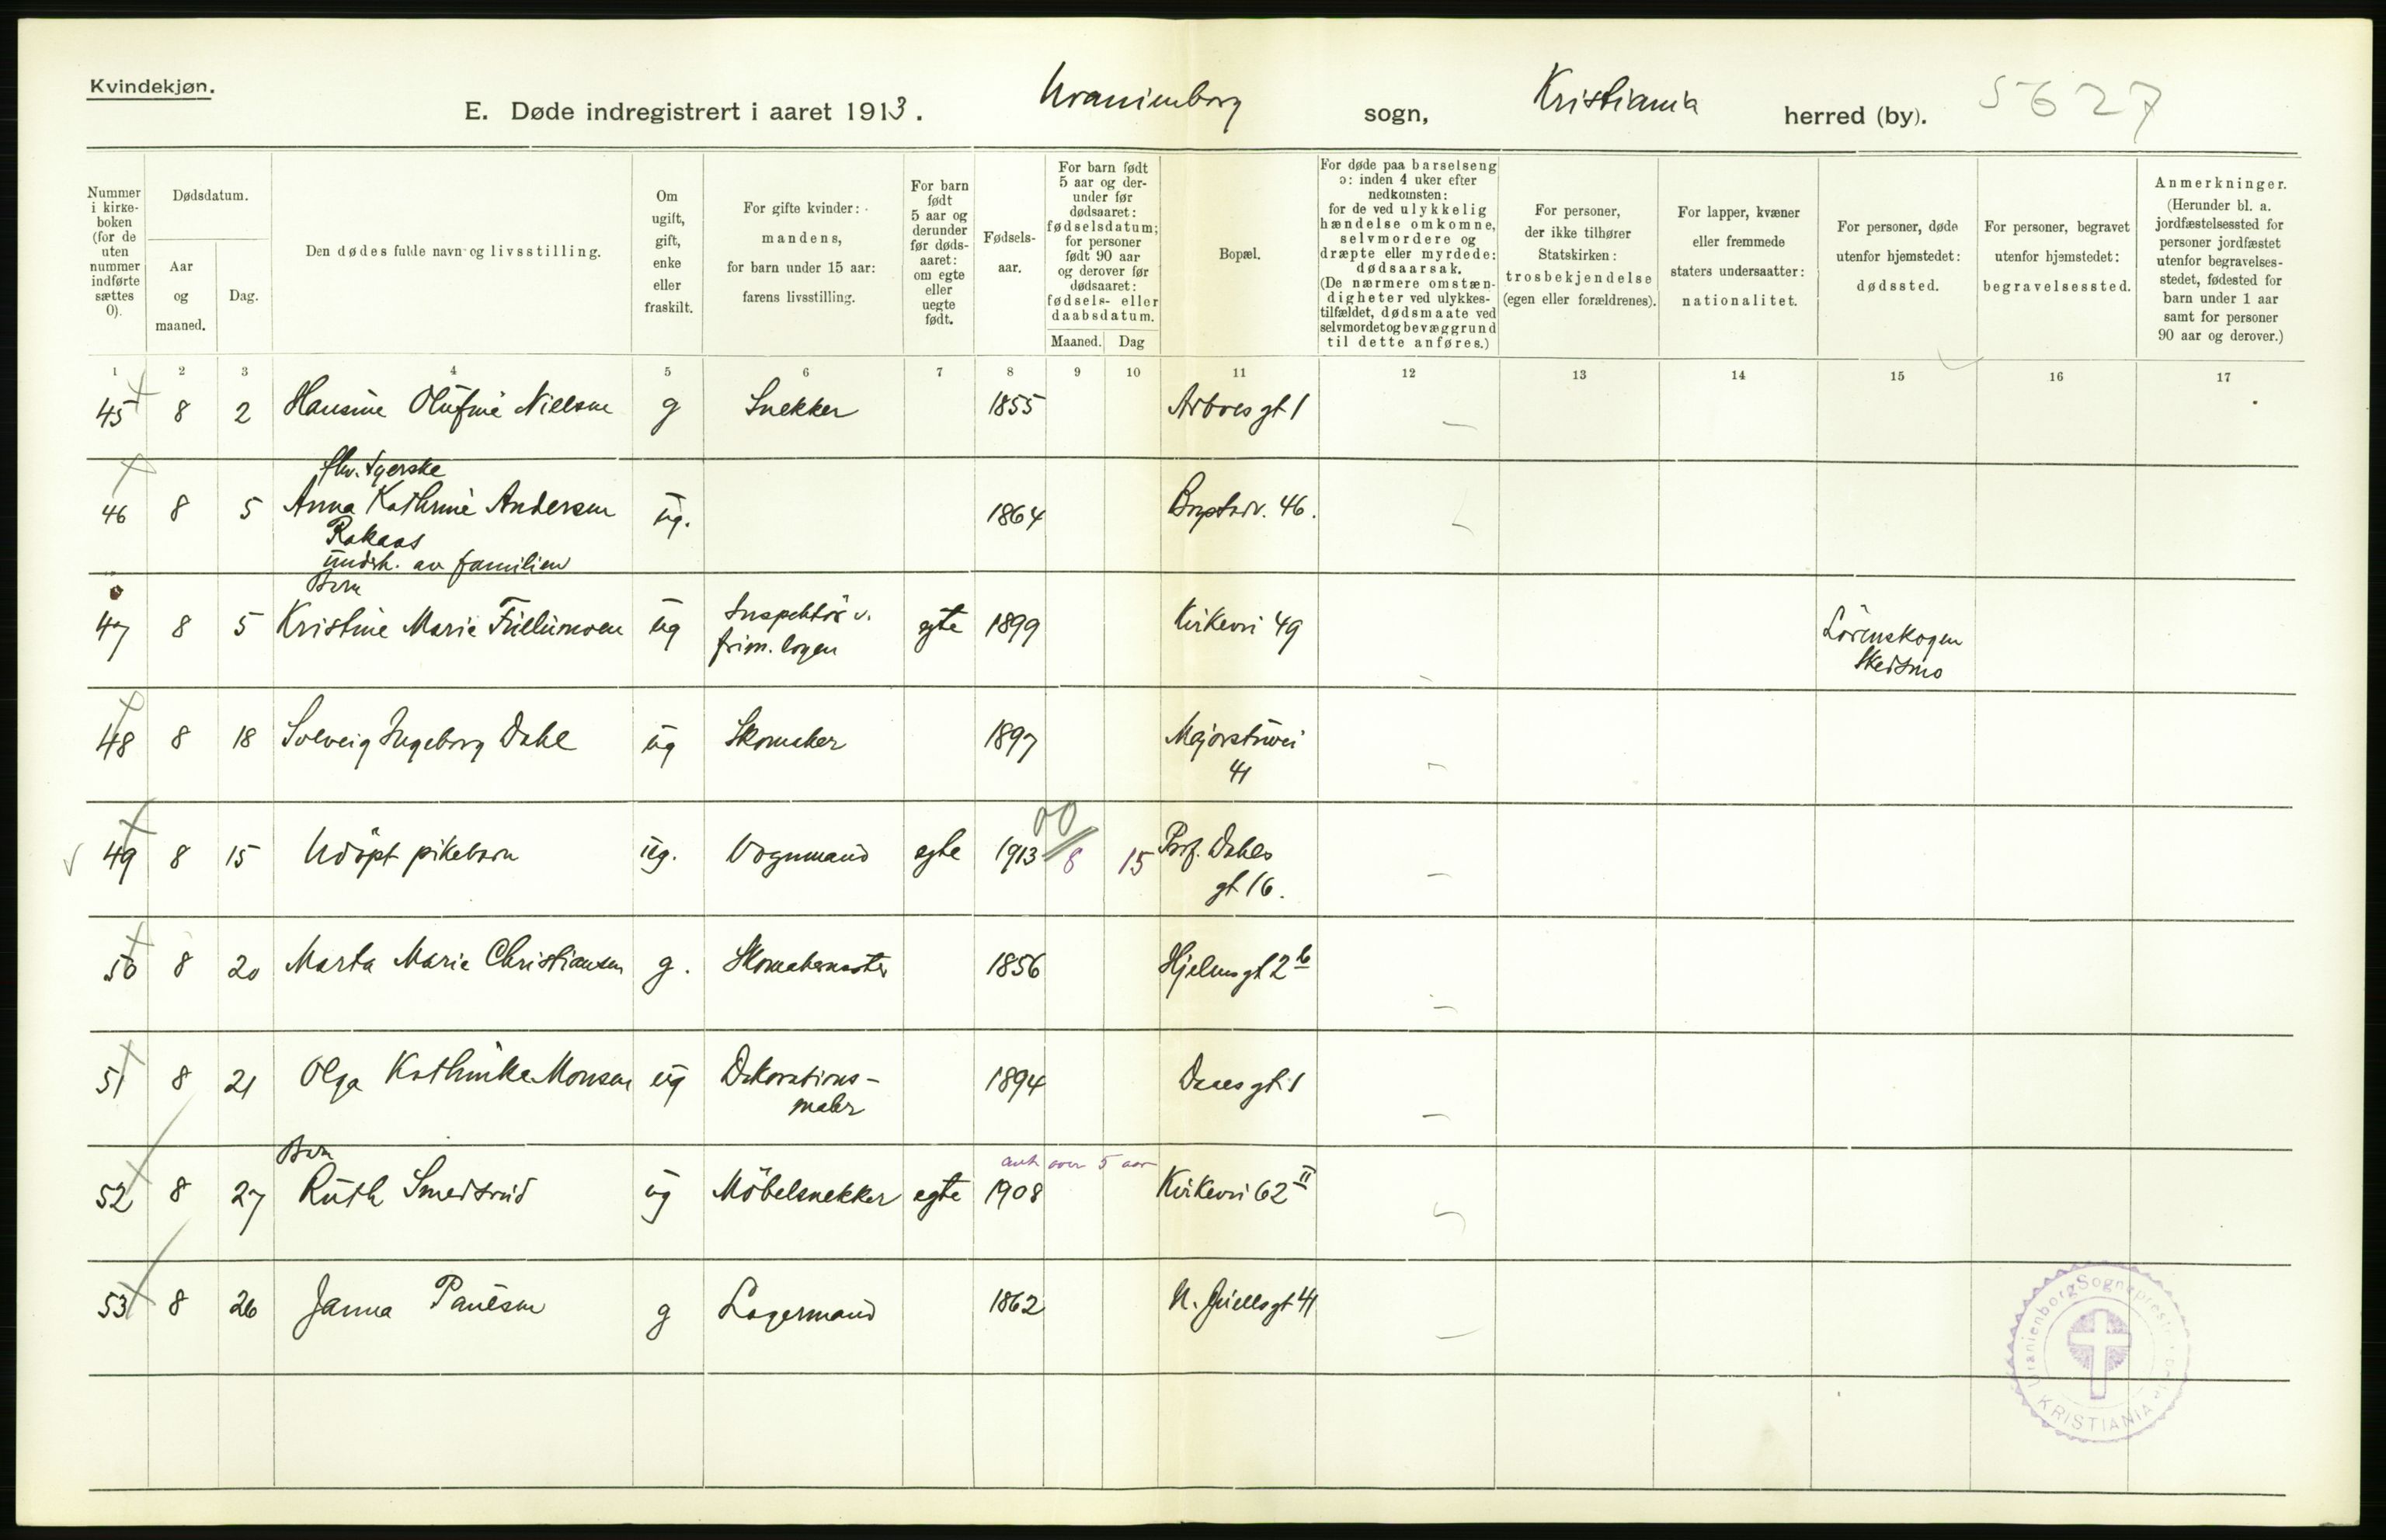 Kvindekjøn.
E. Døde indregistrert i aaret 1913. Uranienborg sogn, Kristiania herred (by). 5627
Nummer i kirkeboken (for de uten nummer indførte sættes 0).
Dødsdatum.
Aar og maaned.
Dag.
Den dødes fulde navn og livsstilling.
Om ugift, gift, enke eller fraskilt.
For gifte kvinder: mandens, for barn under 15 aar: farens livsstilling.
For barn født 5 aar og derunder før dødsaaret: om egte eller uegte født.
Fødselsaar.
For barn født 5 aar og derunder før dødsaaret: fødselsdatum; for personer født 90 aar og derover før dødsaaret: fødsels- eller daabsdatum.
Maaned. Dag
Bopæl.
For døde paa barselseng ɔ: inden 4 uker efter nedkomsten: for de ved ulykkelig hændelse omkomne, selvmordere og dræpte eller myrdede: dødsaarsak. (De nærmere omstændigheter ved ulykkestilfældet, dødsmaate ved selvmordet og bevæggrund til dette anføres.)
For personer, der ikke tilhører Statskirken: trosbekjendelse (egen eller forældrenes).
For lapper, kvæner eller fremmede staters undersaatter: nationalitet.
For personer, døde utenfor hjemstedet: dødssted.
For personer, begravet utenfor hjemstedet: begravelsessted.
Anmerkninger. (Herunder bl. a. jordfæstelsessted for personer jordfæstet utenfor begravelsesstedet, fødested for barn under 1 aar samt for personer 90 aar og derover.)
1 2 3 4 5 6 7 8 9 10 11 12 13 14 15 16 17
45 8 2 Hansine Olufine Nielsen g Snekker 1855 Arboes gt 1
fhv. syerske
46 8 5 Anna Kathrine Andersen ug. 1864 Bogstadv. 46.
Rakaas
undsh. av familien
Barn
47 8 5 Kristine Marie ug Inspektør v. egte 1899 Kirkevei 49 Lørenskogen
frim. logen Skedsmo
48 8 18 Solveig Ingeborg Dahl ug Skomaker 1897 Majorstuvei
41
49 8 15 Udøpt pikebarn ug. Vognmand egte 1913 8 15 Prof. Dahls
gt 16.
50 8 20 Marta Marie Christiansen g. Skomakermester 1856 Hjelmsgt 2 b
51 8 21 Olga Kathinka Monsen ug Dekorations- 1894 Daas gt. 1
maler
Barn
ant. over 5 aar
52 8 27 Ruth Smedsrud ug Møbelsnekker egte 1908 Kirkevei 62 II
53 8 26 Janna Paulsen g Lagermand 1862 N. Juells gt 41
Uranienborg Sogneprest
KRISTIANIA